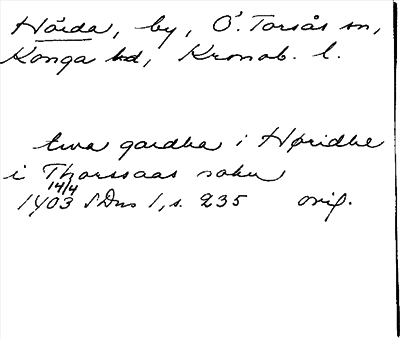 Härda, by, Ö. Torsås sn,
Konga hd, Kronob. l.
twa gardha i Høridhe
i Thorssaas sokn
14/4
1403 SDns 1, s. 235 orig.